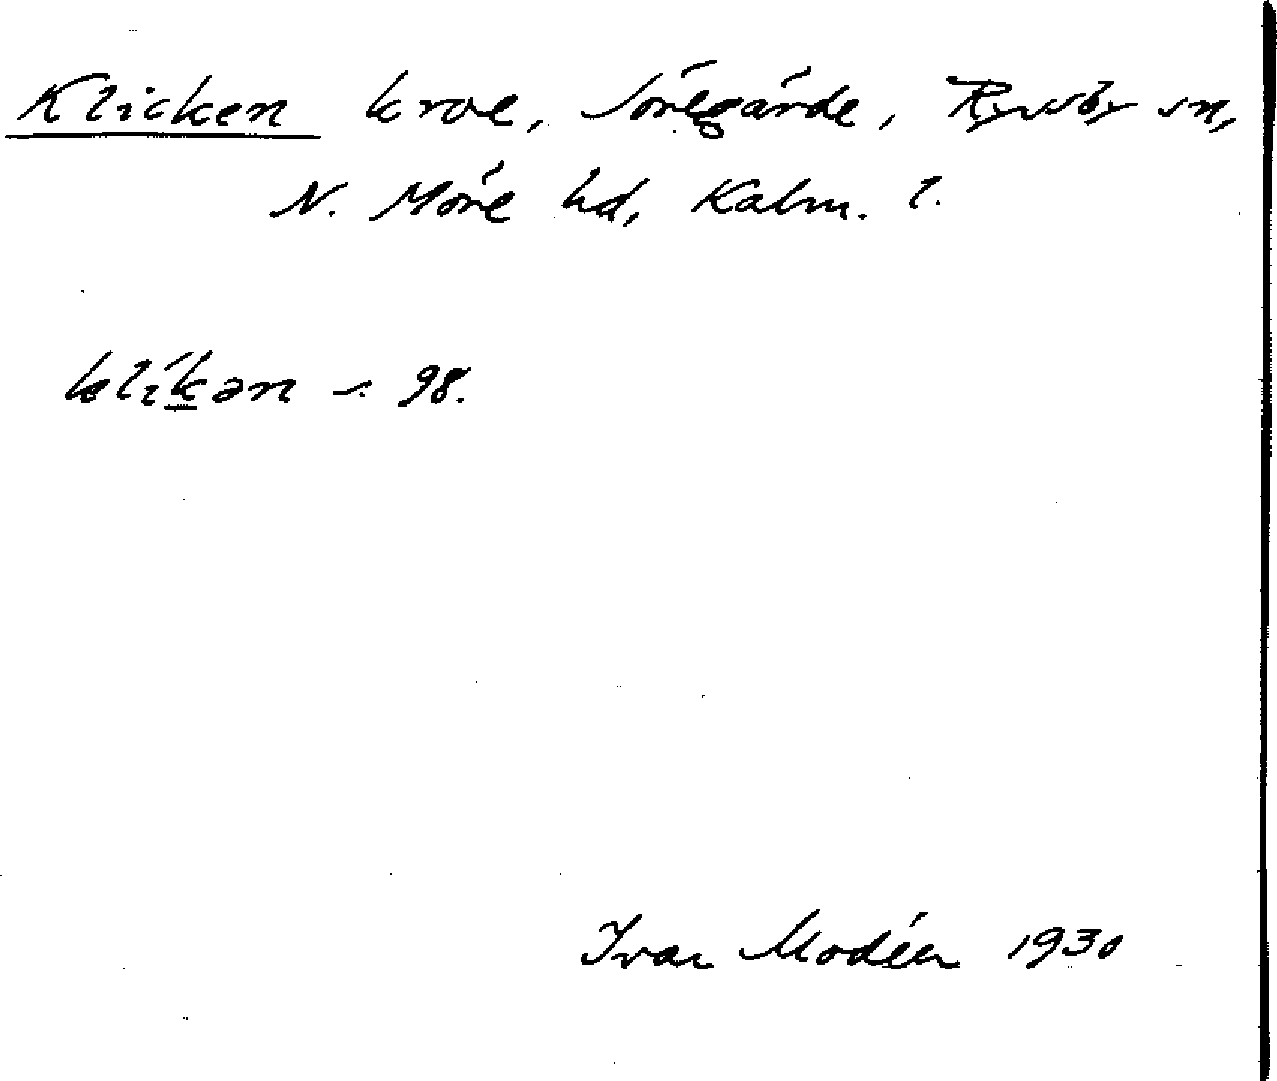 Klicken kroe, Söregärde, Ryssby sn,
N. Möre hd, Kalm. l.
klikən 98.
Ivar Modéer 1930